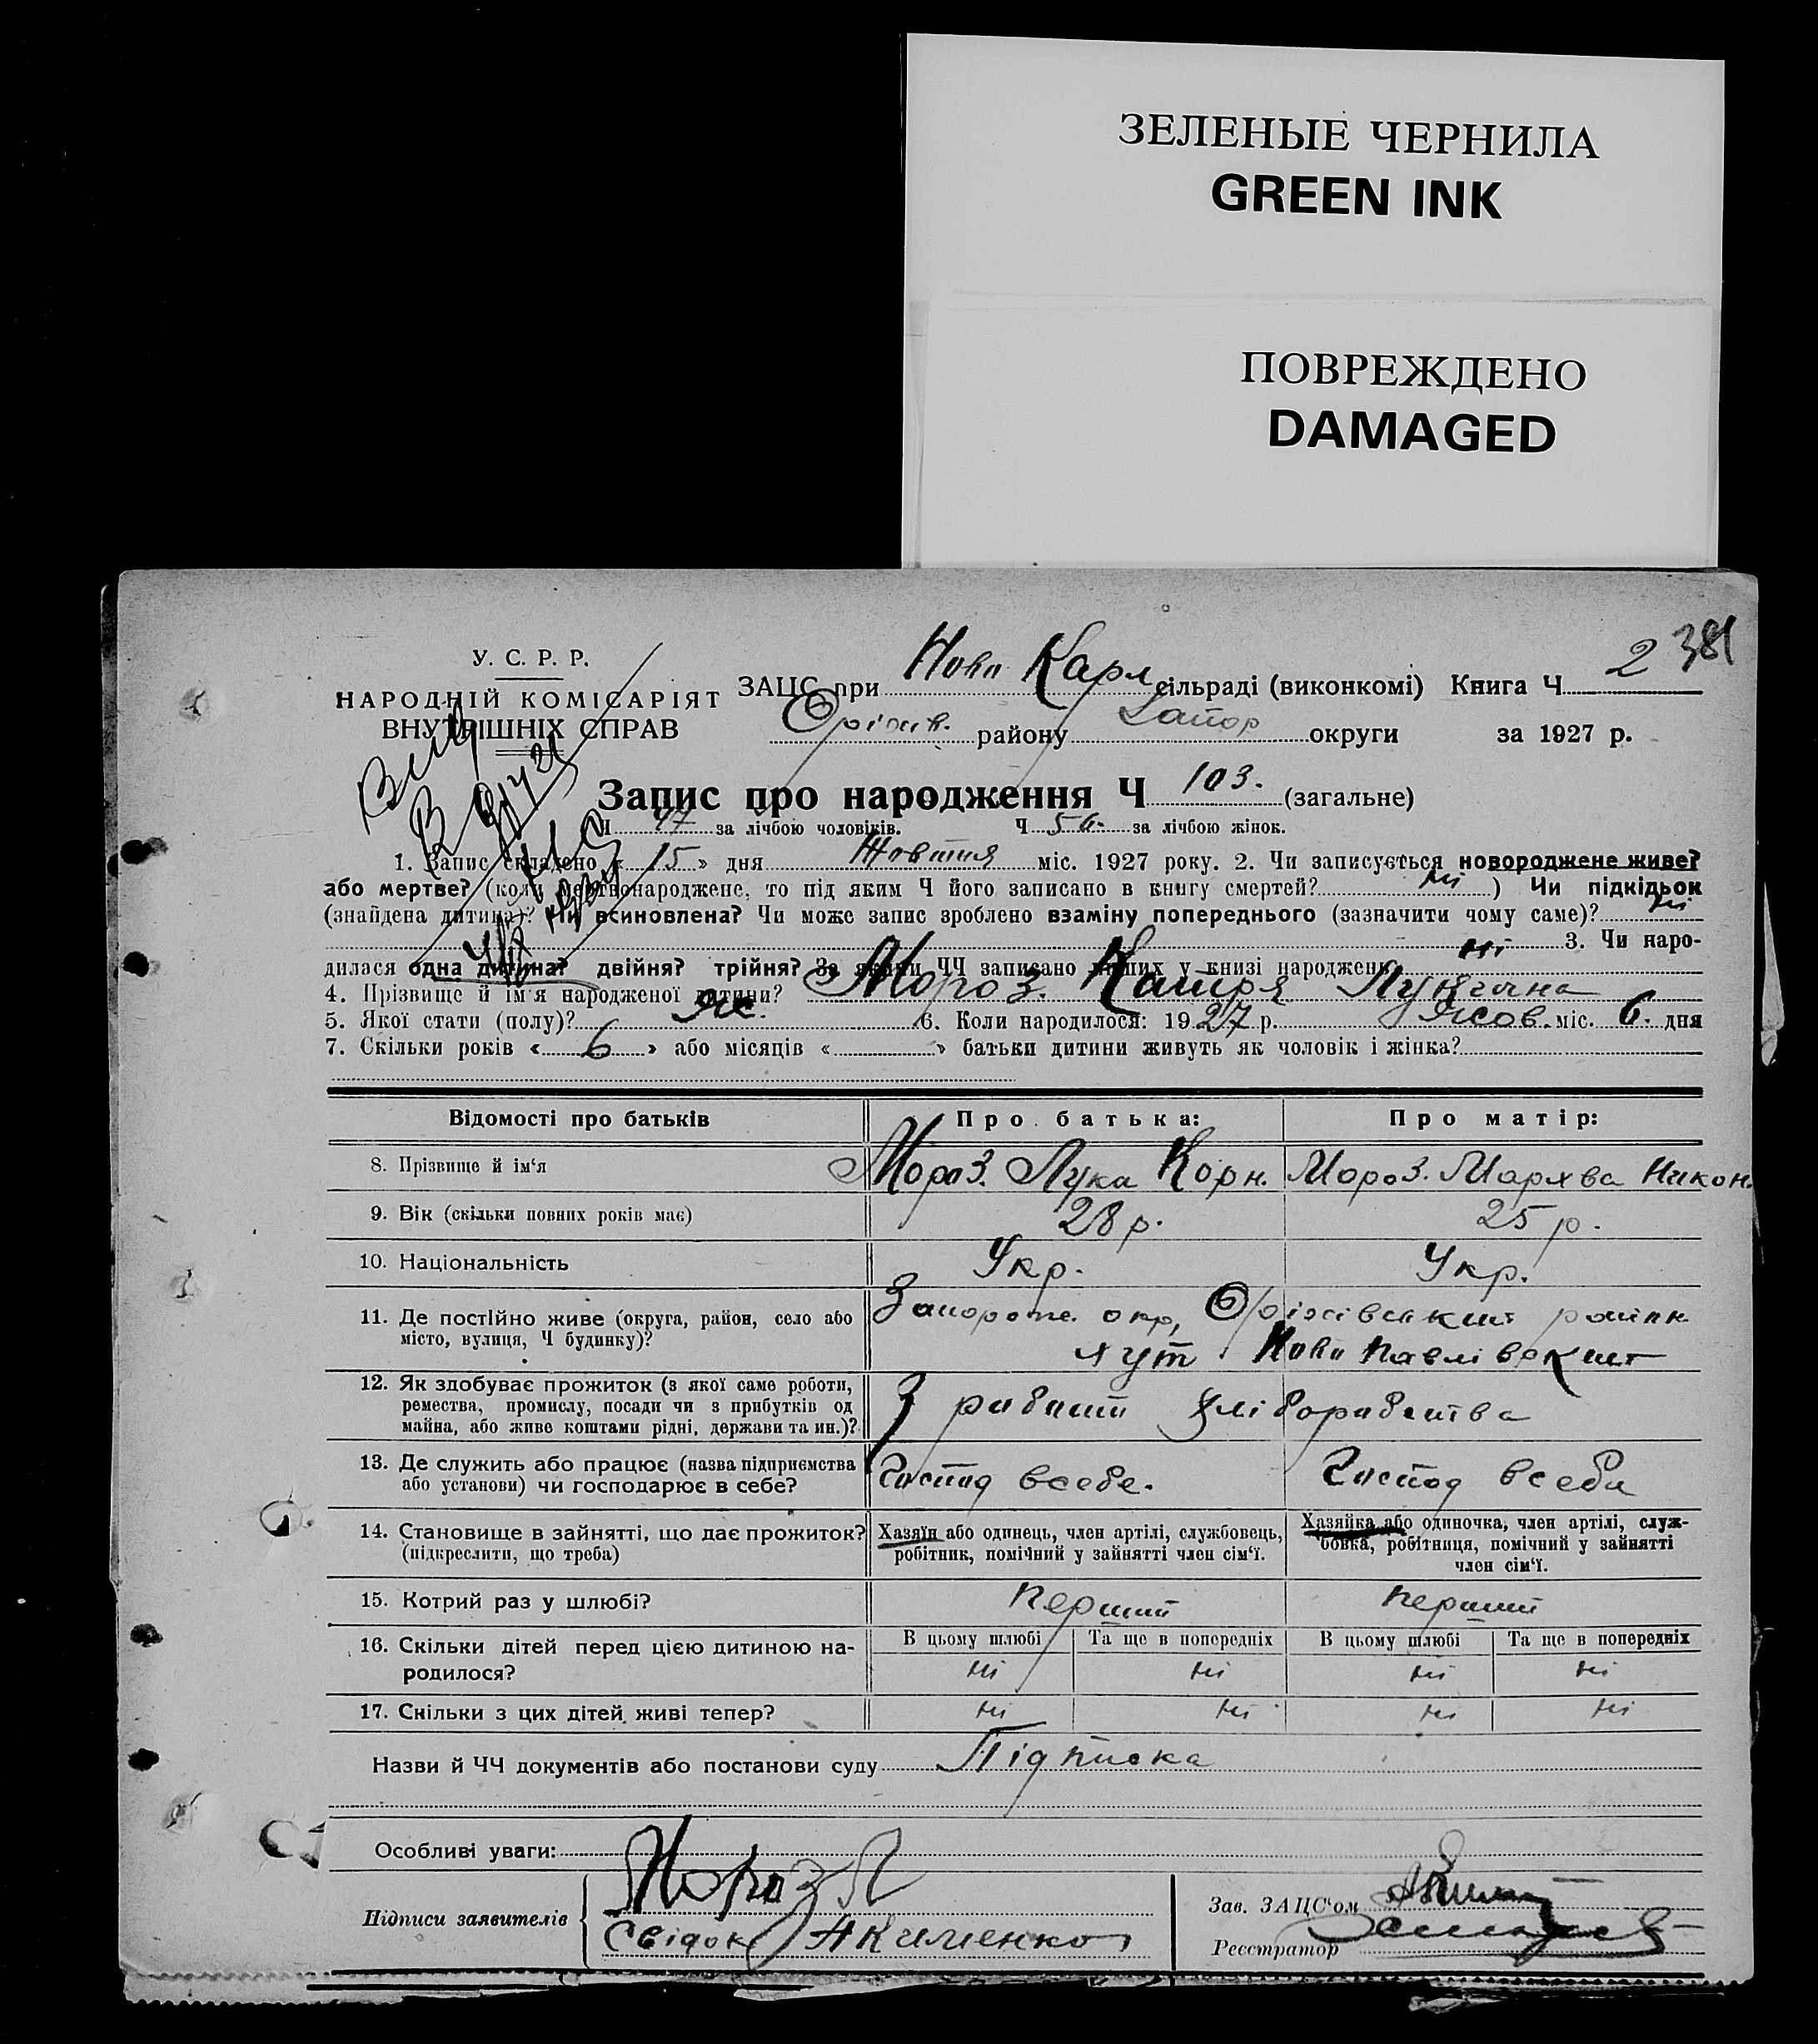 ЗЕЛЕНЫЕ ЧЕРНИЛА
GREEN INK
ПОВРЕЖДЕНО
DAMAGED
2 381
У. С. Р. Р.
НАРОДНІЙ КОМІСАРІЯТ
ВНУТРІШНІХ СПРАВ
ЗАЦС при Ново Карл сільраді (виконкомі) Книга Ч
Оріхів. району Запор округи за 1927 р.
Запис про народження Ч 103. (загальне)
Ч 47 за лічбою чоловіків. Ч 56. за лічбою жінок.
1. Запис складено « 15 » дня Жовтня міс. 1927 року. 2. Чи записується новороджене живе?
або мертве? (коли мертвонароджене, то під яким Ч його записано в книгу смертей? ні ) Чи підкідьок
(знайдена дитина)? Чи всиновлена? Чи може запис зроблено взаміну попереднього (зазначити чому саме)? ні
3. Чи наро-
дилася одна дитина? двійня? трійня? За якими ЧЧ записано інших у книзі народжень ні
4. Прізвище й ім'я народженої дитини? Мороз. Катря Лукічна
5. Якої стати (полу)? Ж. 6. Коли народилося: 1927 р. Жов. міс. 6. дня
7. Скільки років « 6 » або місяців « » батьки дитини живуть як чоловік і жінка?
Відомості про батьків Про батька: Про матір:
8. Прізвище й ім'я Мороз. Лука Корн. Мороз. Мархва Никон.
9. Вік (скільки повних років має) 28 р. 25 р.
10. Національність Укр. Укр.
11. Де постійно живе (округа, район, село або Запорож. окр, Оріхівський район
місто, вулиця, Ч будинку)? хут Ново Павлівский
12. Як здобуває прожиток (з якої саме роботи,
ремества, промислу, посади чи з прибутків од З работи хліборобства
майна, або живе коштами рідні, держави та ин.)?
13. Де служить або працює (назва підприємства Господ всебе. Господ всебе
або установи) чи господарює в себе?
14. Становище в зайнятті, що дає прожиток? Хазяїн або одинець, член артілі, службовець, Хазяйка або одиночка, член артілі, служ-
(підкреслити, що треба) робітник, помічний у зайнятті член сім'ї. бовка, робітниця, помічний у зайнятті
член сім'ї.
15. Котрий раз у шлюбі? Перший Перший
16. Скільки дітей перед цією дитиною на- В цьому шлюбі Та ще в попередніх В цьому шлюбі Та ще в попередніх
родилося? ні ні ні ні
17. Скільки з цих дітей живі тепер? ні ні ні ні
Назви й ЧЧ документів або постанови суду Підписка
Особливі уваги:
Підписи заявителів Мороз Л
Свідок Акименко
Зав. ЗАЦС'ом
Реєстратор